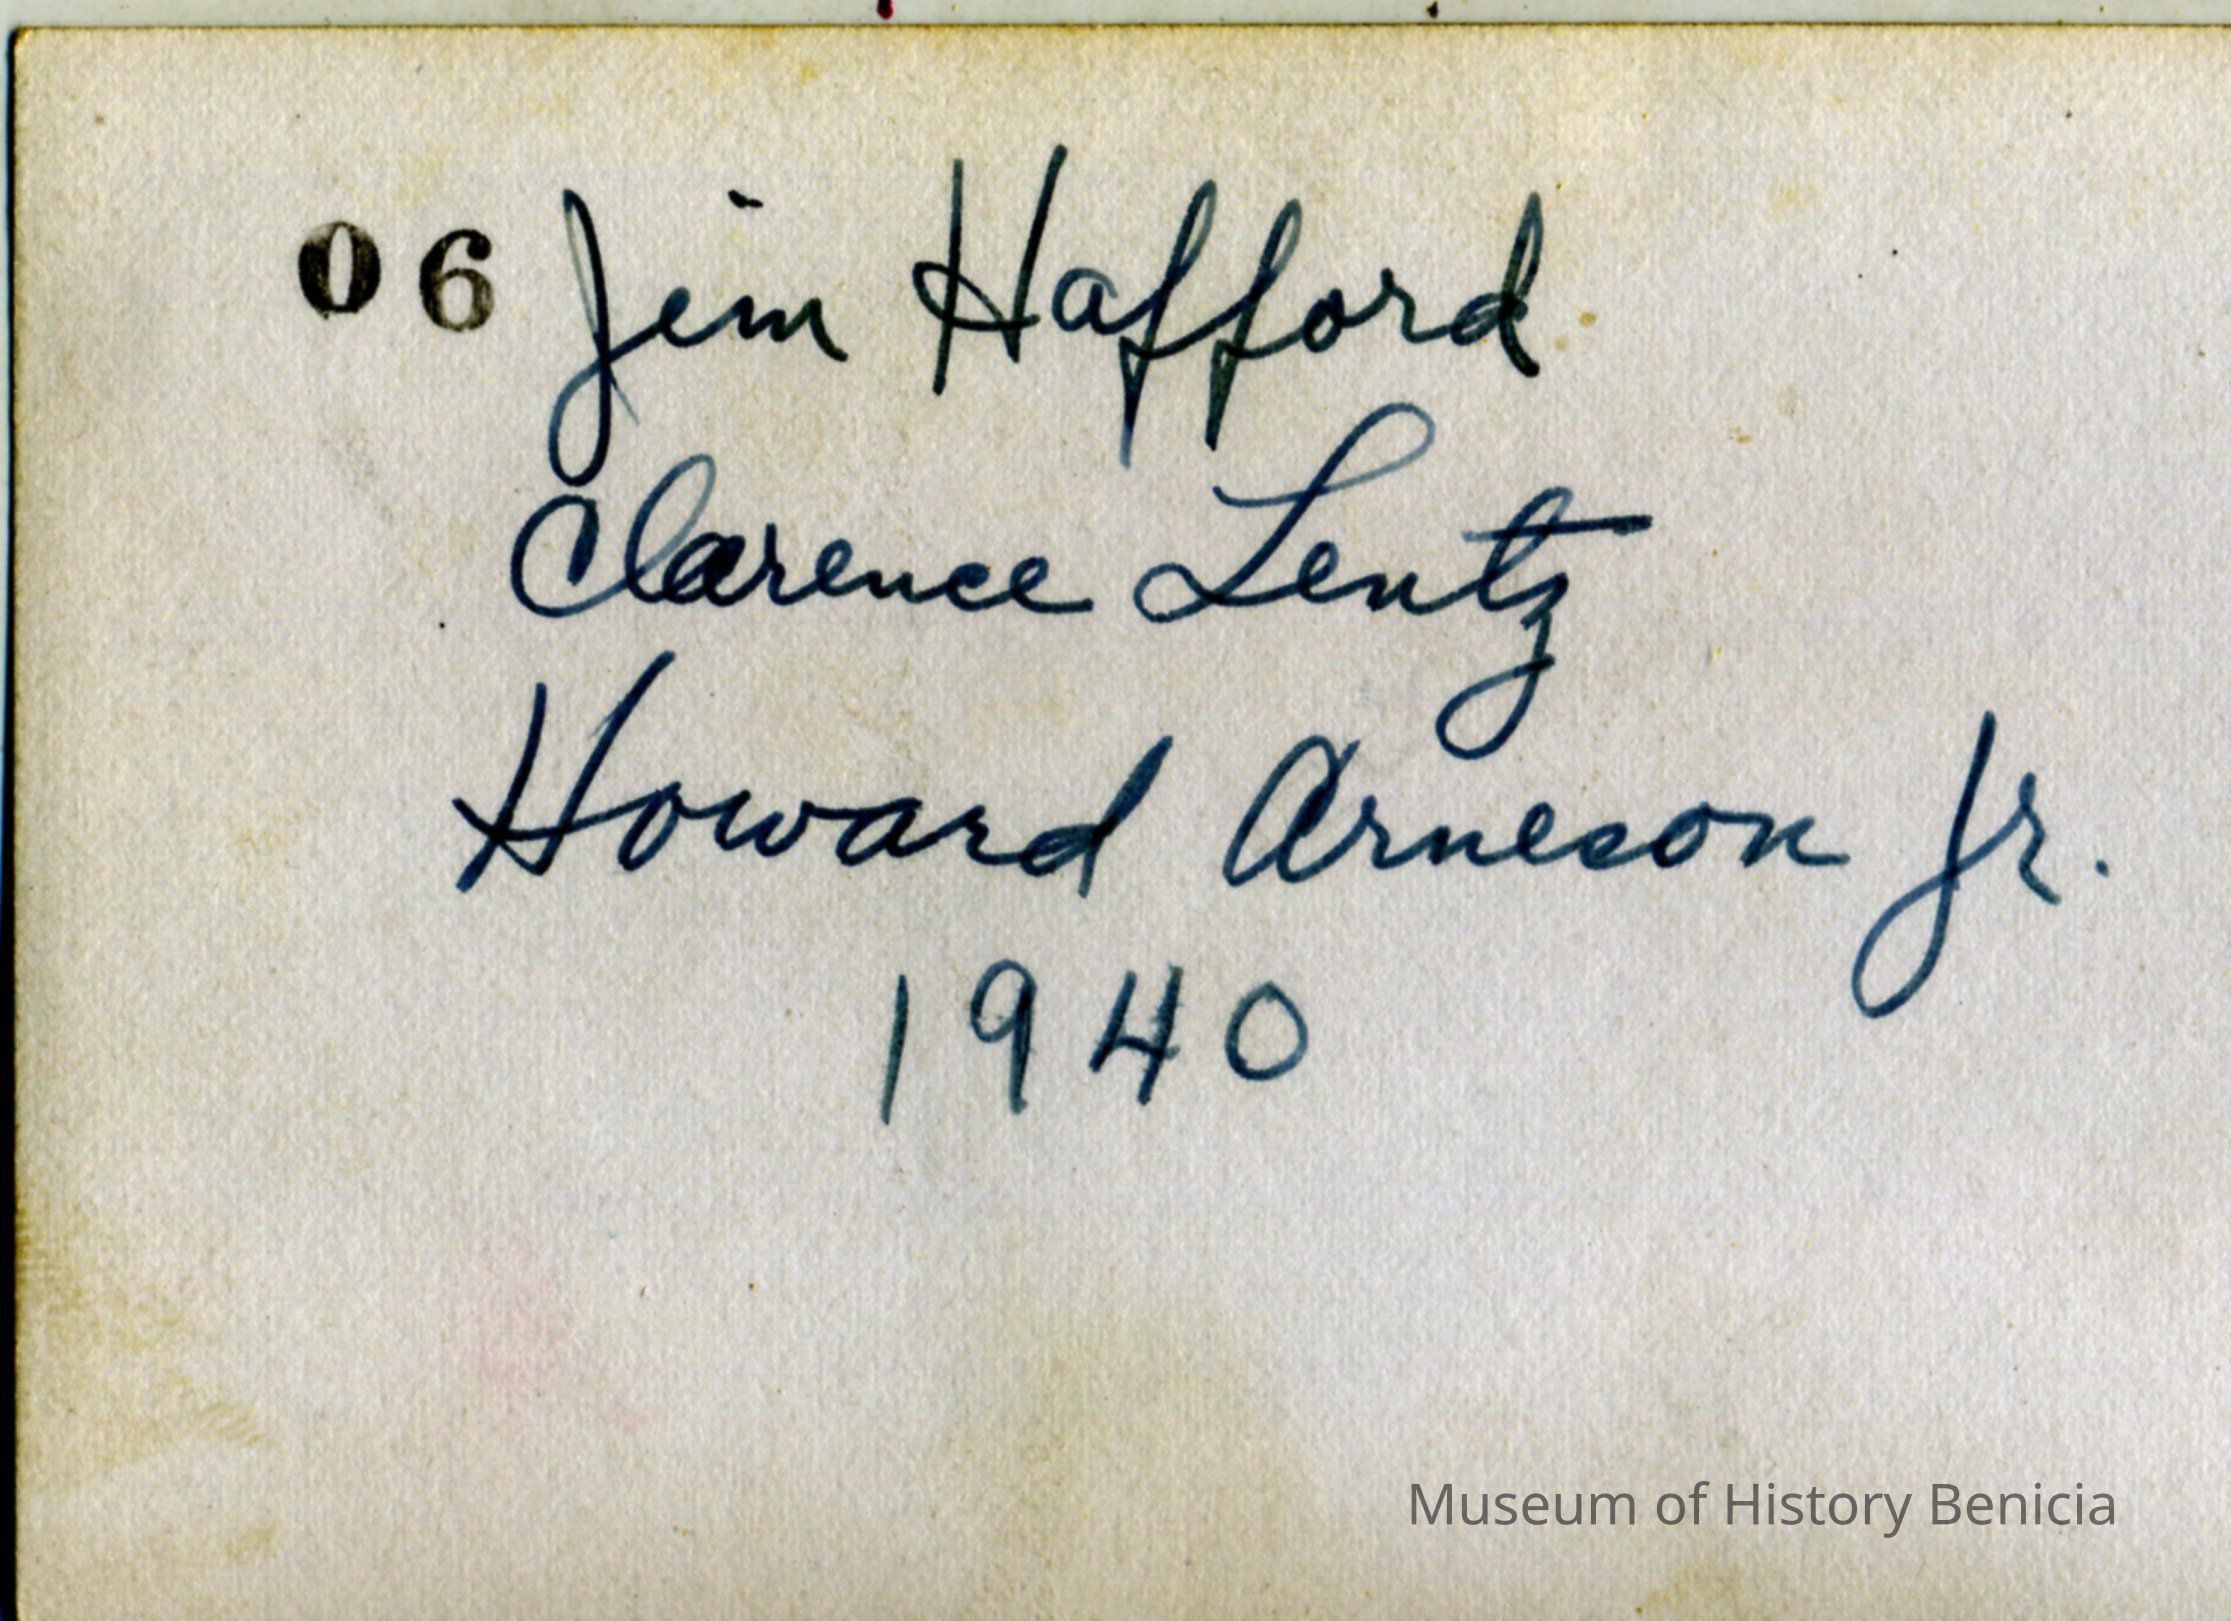 06 Jim Hafford
Clarence Lentz
Howard Arneson Jr.
1940
Museum of History Benicia